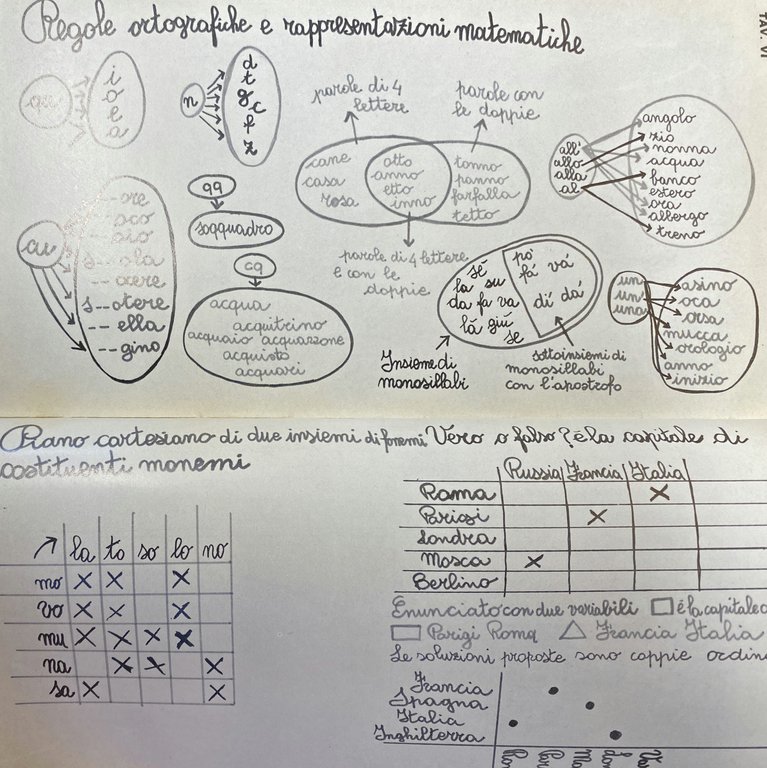 Regole ortografiche e rappresentazioni matematiche
TAV. VI
qu
i
o
e
a
n
d
t
g c
f
z
parole di 4
lettere
parole con
le doppie
cane
casa
rosa
otto
anno
etto
inno
tonno
panno
farfalla
tetto
parole di 4 lettere
e con le
doppie
all'
allo
alla
al
angolo
zio
nonna
acqua
banco
estero
ora
albergo
treno
cu
-- ore
-- oco
-- oio
s-- ola
-- ocere
s-- otere
-- ella
-- gino
qq
soqquadro
cq
acqua
acquitrino
acquaio acquazzone
acquisto
acquari
sé
la su
da fa va
là giù
se
po'
fa' va'
di' da'
Insieme di
monosillabi
sottoinsiemi di
monosillabi
con l'apostrofo
un
un'
una
asino
oca
orsa
mucca
orologio
anno
inizio
Piano cartesiano di due insiemi di fonemi
costituenti monemi
la to so lo no
mo X X X
vo X X X
mu X X X X
na X X X
sa X X
Vero o falso? è la capitale di
Russia Francia Italia
Roma X
Parigi X
Londra
Mosca X
Berlino
Enunciato con due variabili □ è la capitale d
□ Parigi Roma △ Francia Italia
Le soluzioni proposte sono coppie ordin
Francia
Spagna
Italia
Inghilterra